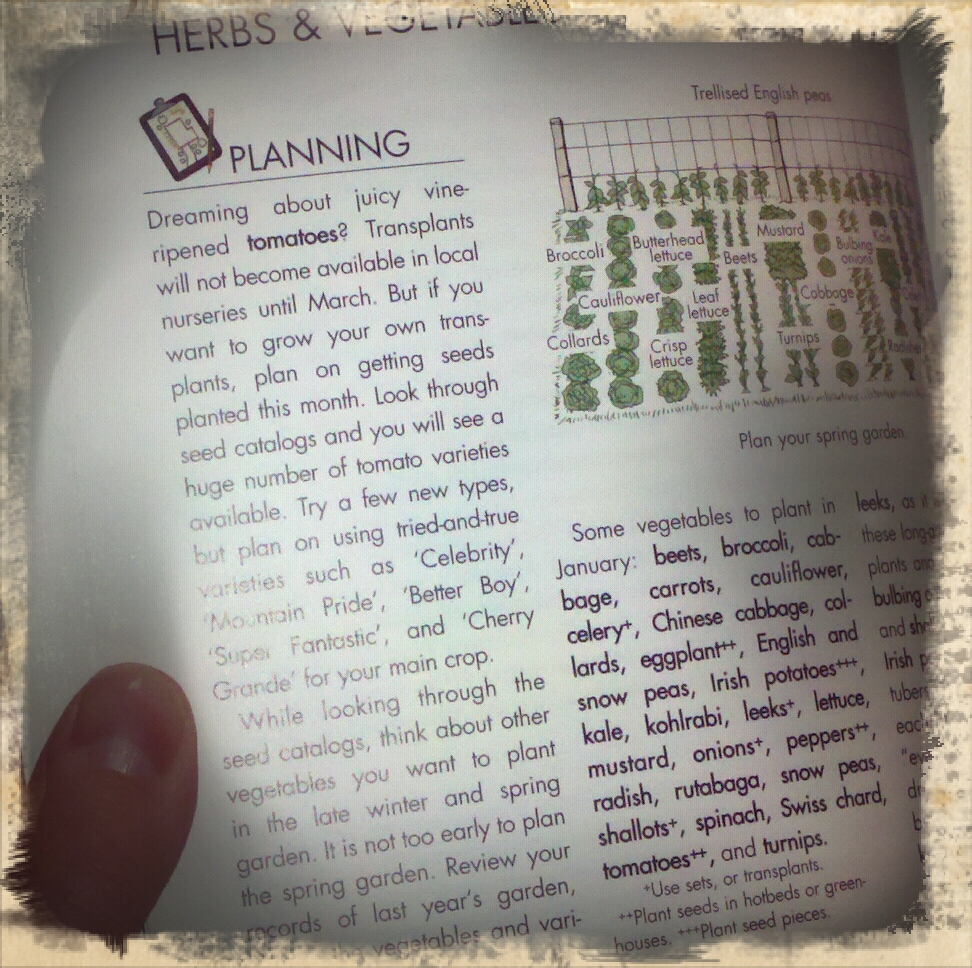 HERBS & VEGETABLES
PLANNING
Dreaming about juicy vine-
ripened tomatoes? Transplants
will not become available in local
nurseries until March. But if you
want to grow your own trans-
plants, plan on getting seeds
planted this month. Look through
seed catalogs and you will see a
huge number of tomato varieties
available. Try a few new types,
but plan on using tried-and-true
varieties such as 'Celebrity',
'Mountain Pride', 'Better Boy',
'Super Fantastic', and 'Cherry
Grande' for your main crop.
While looking through the
seed catalogs, think about other
vegetables you want to plant
in the late winter and spring
garden. It is not too early to plan
the spring garden. Review your
records of last year's garden,
vegetables and vari-
Trellised English peas
Broccoli
Butterhead
lettuce
Beets
Mustard
Bulbing
onions
Kale
Cauliflower
Leaf
lettuce
Cabbage
Collards
Crisp
lettuce
Turnips
Plan your spring garden.
Some vegetables to plant in
January: beets, broccoli, cab-
bage, carrots, cauliflower,
celery+, Chinese cabbage, col-
lards, eggplant++, English and
snow peas, Irish potatoes+++,
kale, kohlrabi, leeks+, lettuce,
mustard, onions+, peppers++,
radish, rutabaga, snow peas,
shallots+, spinach, Swiss chard,
tomatoes++, and turnips.
+Use sets, or transplants.
++Plant seeds in hotbeds or green-
houses. +++Plant seed pieces.
leeks, as
these
plants
bulbing
and
Irish
tubers